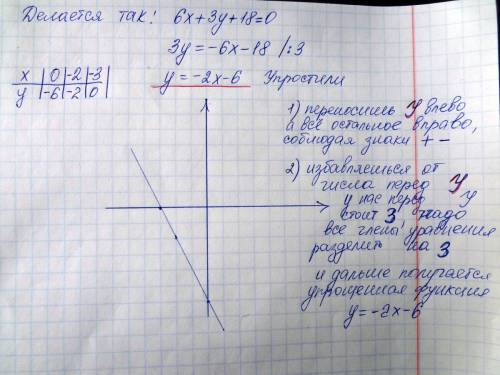 Делается так: 6x+3y+18=0
3y=-6x-18 /:3
x | 0 | -2 | -3
y | -6 | -2 | 0
y=-2x-6 Упростили
1) переносишь У влево
а всё остальное вправо,
соблюдая знаки + -
2) избавляешься от
числа перед У
у нас перед у
стоит 3 надо
все члены уравнения
разделить на 3
и дальше получается
упрощенная функция
y=-2x-6